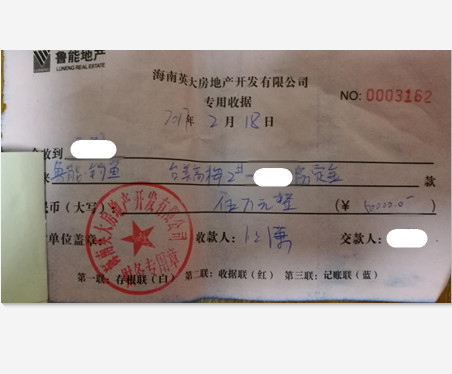 鲁能地产
LUNENG REAL ESTATE
海南英大房地产开发有限公司
专用收据
NO: 0003162
2013年 2 月 18 日
收到
鲁能·钓鱼台美高梅2# 房定金 款
民币(大写) 伍万元整 (¥ 50000.0
单位盖章: 收款人: 交款人:
海南英大房地产开发有限公司
财务专用章
第一联:存根联(白) 第二联:收据联(红) 第三联:记账联(蓝)